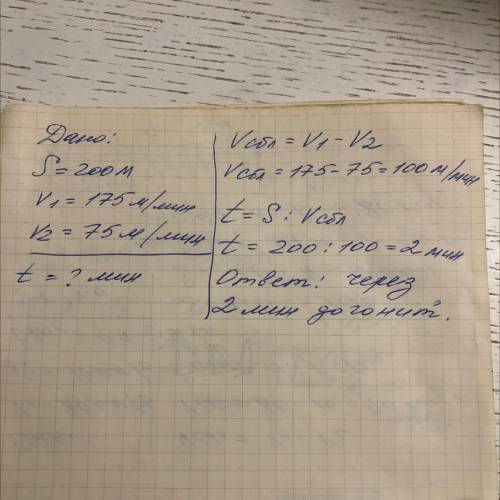 Дано:
S = 200м
V1 = 175 м/мин
V2 = 75 м/мин
t = ? мин
Vсбл = V1 - V2
Vсбл = 175 - 75 = 100 м/мин
t = S : Vсбл
t = 200 : 100 = 2 мин
Ответ: через
2 мин догонит.